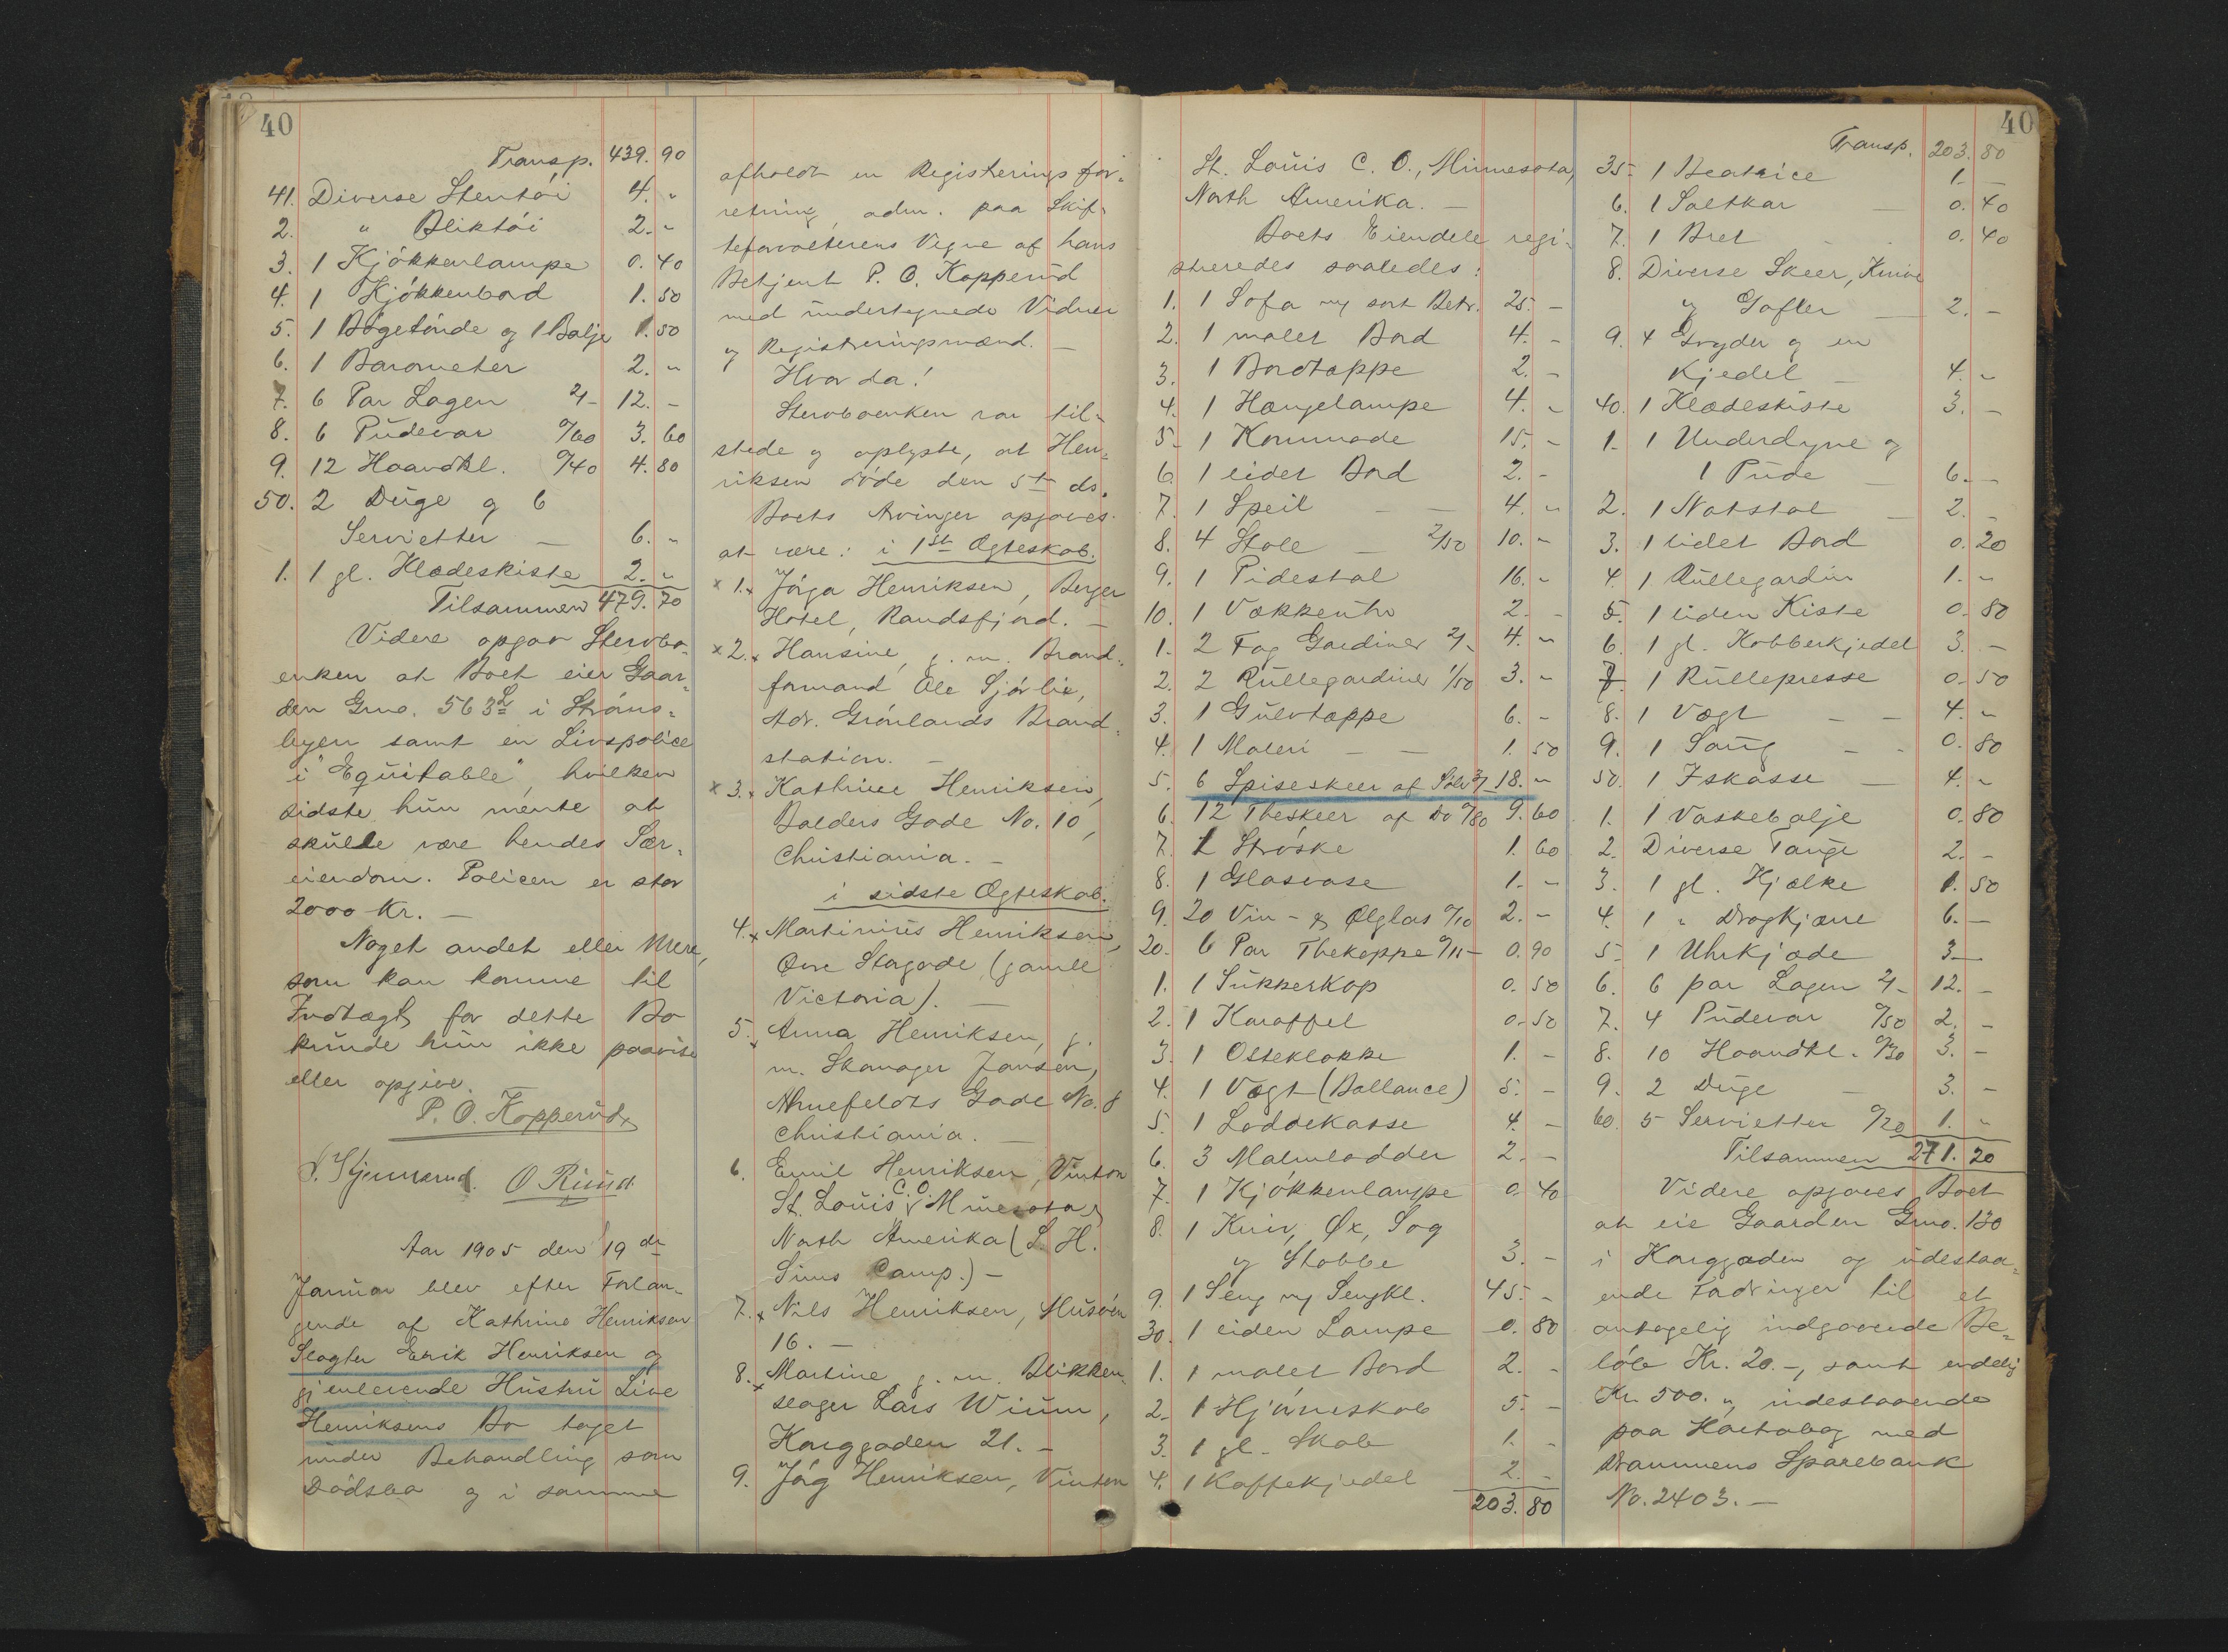 40
Transp. 439. 90
41. Diverse Stentöi 4. "
2. " Bliktöi 2. "
3. 1 Kjökkenlampe 0. 40
4. 1 Kjökkenbord 1. 50
5. 1 Bögetönde og 1 Balje 1. 50
6. 1 Barometer 2. "
7. 6 Par Lagen 2/- 12. -
8. 6 Pudevar 0/60 3. 60
9. 12 Haandkl. 0/40 4. 80
50. 2 Duge og 6
Servietter - 6. "
1. 1 gl. Klædeskiste 2. "
Tilsammen 479. 70
Videre opgav Stervbo-
enken at Boet eier Gaar-
den Grno. 563 i Ströms-
byen samt en Livspolice
i "Equitable", hvilken
sidste hun mente at
skulle være hendes Sær-
eiendom. Policen er stor
2000 Kr. -
Noget andet eller mere,
som kan komme til
Indtægt for dette Bo
kunde hun ikke paavise
eller opgive.
P. O. Kopperud
O Ruud
Aar 1905 den 19 de
Januar blev efter Forlan-
gende af Kathrine Henriksen
Slagter Erik Henriksen og
gjenlevende Hustru Live
Henriksens Bo taget
under Behandling som
Dödsbo og i samme
afholdt en Registeringsfor-
retning, adm. paa Skif-
teforvalterens Vegne af hans
Betjent P. O. Kopperud
med undertegnede Vidner
og Registreringsmænd. -
Hvor da!
Stervboenken var til-
stede og oplyste, at Hen-
riksen döde den 5te ds.
Boets Arvinger opgaves
at være: i 1st Ægteskab.
x 1. x Jörga Henriksen, Berger
Hotel, Randsfjord. -
x 2. x Hansine, g. m. Brand-
formand Ole Sjörlie,
Adr. Grönlands Brand-
station. -
x 3. x Kathrine Henriksen,
Balders Gade No. 10,
Christiania. -
i sidste Ægteskab.
4. x Martinius Henriksen,
Övre Storgade (gamle
Victoria). -
5. x Anna Henriksen, g.
m. Skomager Jansen,
Ahnefeldts Gade No. 8
Christiania. -
6. Emil Henriksen, Vinton
St. Louis C. O. Minesota,
North Amerika (S. H.
Sims Camp.) -
7. x Nils Henriksen, Musöen
16. -
8. x Martine g. m. Blikken-
slager Lars Wium,
Konggaden 21. -
9. Jörg Henriksen, Vinton
St. Louis C. O., Minnesota,
North Amerika. -
Boets Eiendele regi-
streredes saaledes:
1. 1 Sofa m/ sort Betr. 25. -
2. 1 malet Bord 4. -
3. 1 Bordtæppe 2. -
4. 1 Hængelampe 4. "
5. 1 Kommode 15. -
6. 1 lidet Bord 2. -
7. 1 Speil - - 4. "
8. 4 Stole - 2/50 10. "
9. 1 Pidestal 16. "
10. 1 Vækkeuhr 2. -
1. 2 Fag Gardiner 2/- 4. "
2. 2 Rullegardiner 1/50 3. "
3. 1 Gulvtæppe 6. -
4. 1 Maleri - - 1. 50
5. 6 Spiseskeer af Sölv 3/- 18. "
6. 12 Theskeer af Do 0/80 9. 60
7. 1 Ströske 1. 60
8. 1 Glasvase 1. -
9. 20 Vin- & Ølglas 0/10 2. -
20. 6 Par Thekoppe 0/15 - 0. 90
1. 1 Sukkerkop 0. 50
2. 1 Karaffel 0. 50
3. 1 Osteklokke 1. -
4. 1 Vægt (Ballance) 5. -
5. 1 Loddekasse 4. -
6. 3 Malmlodder 2. -
7. 1 Kjökkenlampe 0. 40
8. 1 Kniv, Øx, Sag
og Stabbe 3. -
9. 1 Seng m/ Sengkl. 45. -
30. 1 liden Lampe 0. 80
1. 1 malet Bord 2. -
2. 1 Hjörneskab 5. -
3. 1 gl. Skab 1. -
4. 1 Kaffekjedel 2. -
203. 80
40
Transp. 203. 80
35. 1 Beatrice 1. -
6. 1 Saltkar - 0. 40
7. 1 Bret - 0. 40
8. Diverse Skeer, Knive
og Gafler - 2. -
9. 4 Gryder og en
Kjedel - 4. "
40. 1 Klædeskiste 3. -
1. 1 Underdyne og
1 Pude - 6. -
2. 1 Natstol - 2. -
3. 1 lidet Bord 0. 20
4. 1 Rullegardin 1. "
5. 1 liden Kiste 0. 80
6. 1 gl. Kobberkjedel 3. -
7. 1 Rullepresse 0. 50
8. 1 Vægt - - 4. "
9. 1 Saug - - 0. 80
50. 1 Iskasse - 4. "
1. 1 Vaskebalje 0. 80
2. Diverse Tauge 2. -
3. 1 gl. Kjælke 1. 50
4. 1 " Dragkjærre 6. -
5. 1 Uhrkjæde 3. -
6. 6 par Lagen 2/- 12. -
7. 4 Pudevar 0/50 2. -
8. 10 Haandkl. 0/30 3. -
9. 2 Duge - 3. -
60. 5 Servietter 0/20 1. "
Tilsammen 271. 20
Videre opgaves Boet
at eie Gaarden Grno. 130
i Konggaden og udestaa-
ende Fordringer til et
antagelig indgaaende Be-
löb Kr. 20. -, samt endelig
Kr. 500. ", indestaaende
paa Kontrabog med
Drammens Sparebank
No. 2403. -